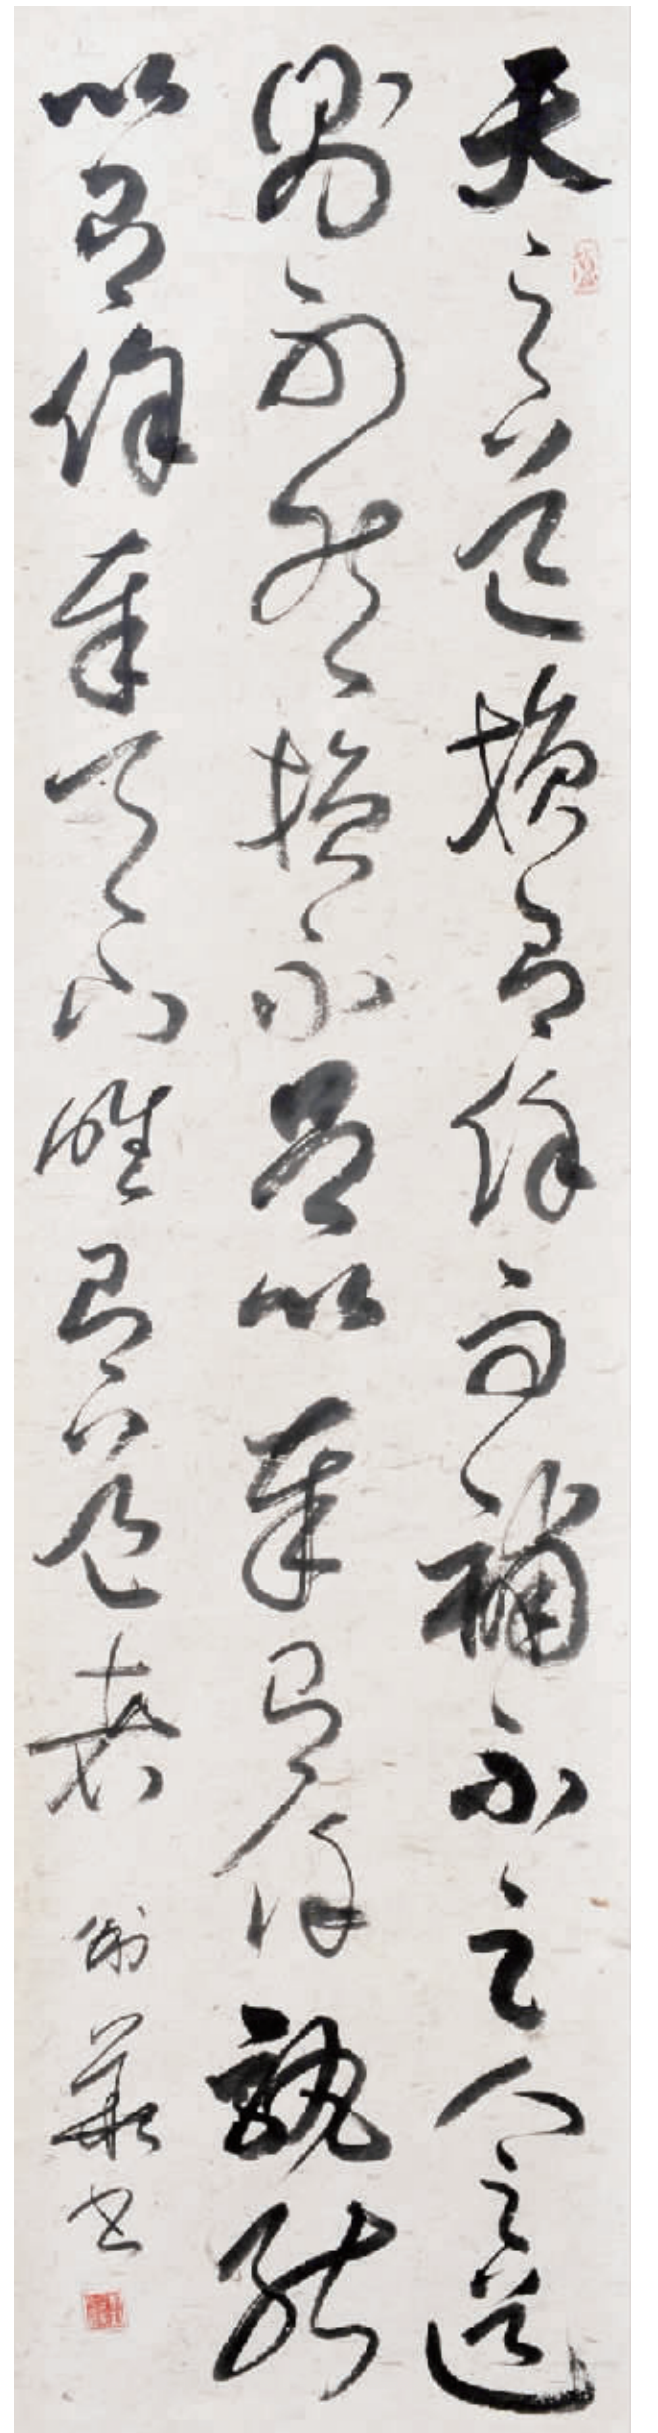 天之道損有餘而補不足人之道
則不然損不足以奉有餘孰能
以有餘奉天下唯有道者 書